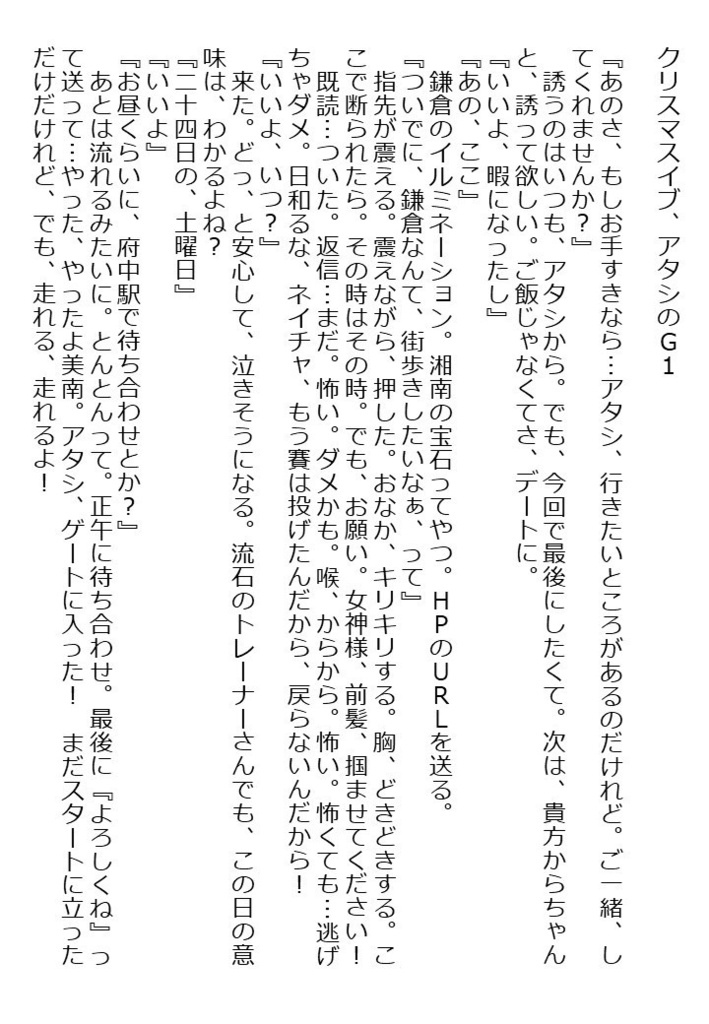 クリスマスイブ、アタシのG1
『あのさ、もしお手すきなら…アタシ、行きたいところがあるのだけれど。ご一緒、し
てくれませんか？』
　誘うのはいつも、アタシから。でも、今回で最後にしたくて。次は、貴方からちゃん
と、誘って欲しい。ご飯じゃなくてさ、デートに。
『いいよ、暇になったし』
『あの、ここ』
　鎌倉のイルミネーション。湘南の宝石ってやつ。HPのURLを送る。
『ついでに、鎌倉なんて、街歩きしたいなぁ、って』
　指先が震える。震えながら、押した。おなか、キリキリする。胸、どきどきする。こ
こで断られたら。その時はその時。でも、お願い。女神様、前髪、掴ませてください！
　既読…ついた。返信…まだ。怖い。ダメかも。喉、からから。怖い。怖くても…逃げ
ちゃダメ。日和るな、ネイチャ、もう賽は投げたんだから、戻らないんだから！
『いいよ、いつ？』
　来た。どっ、と安心して、泣きそうになる。流石のトレーナーさんでも、この日の意
味は、わかるよね？
『二十四日の、土曜日』
『いいよ』
『お昼くらいに、府中駅で待ち合わせとか？』
　あとは流れるみたいに。とんとんって。正午に待ち合わせ。最後に『よろしくね』っ
て送って…やった、やったよ美南。アタシ、ゲートに入った！　まだスタートに立った
だけだけれど、でも、走れる、走れるよ！